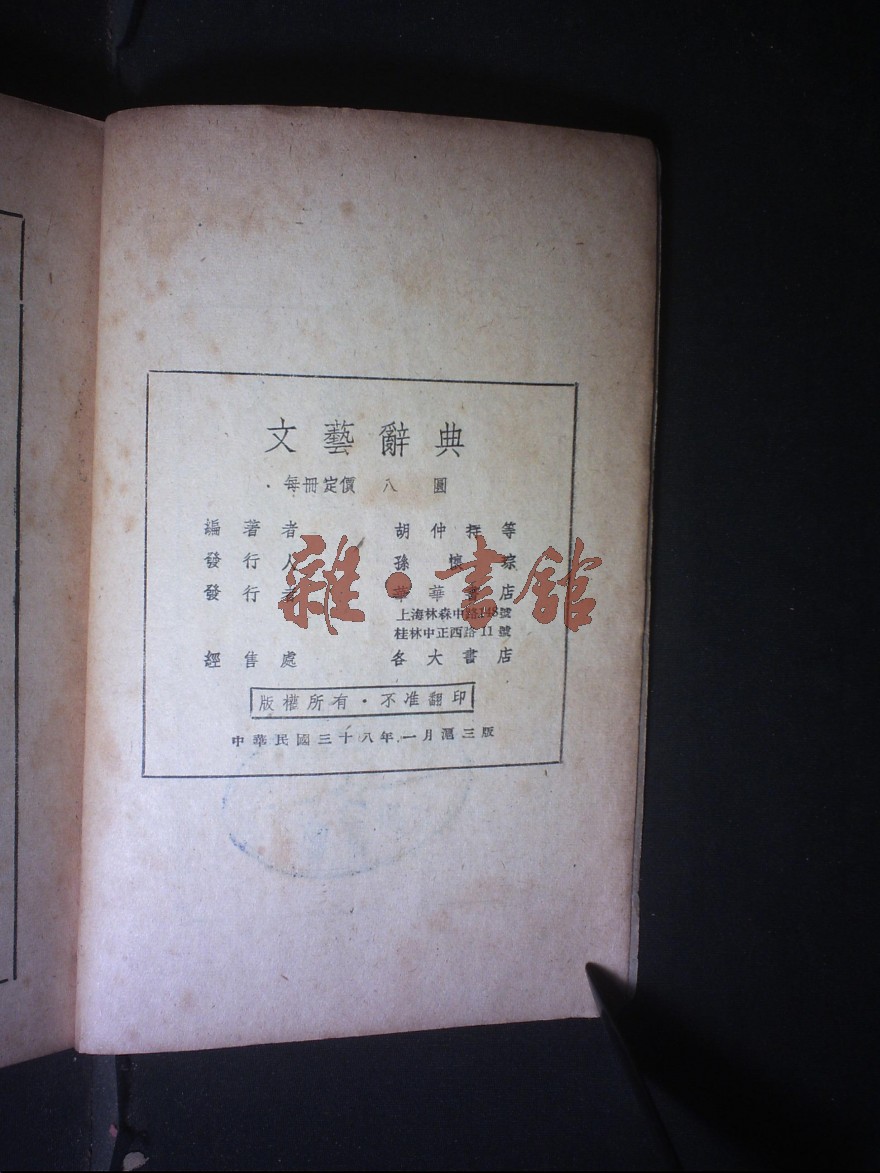 文藝辭典
·每冊定價 八 圓
編著者 胡仲持等
發行人 孫懷琮
發行者 華華書店
上海林森中路148號
桂林中正西路11號
經售處 各大書店
版權所有·不准翻印
中華民國三十八年一月滬三版
雜·書館